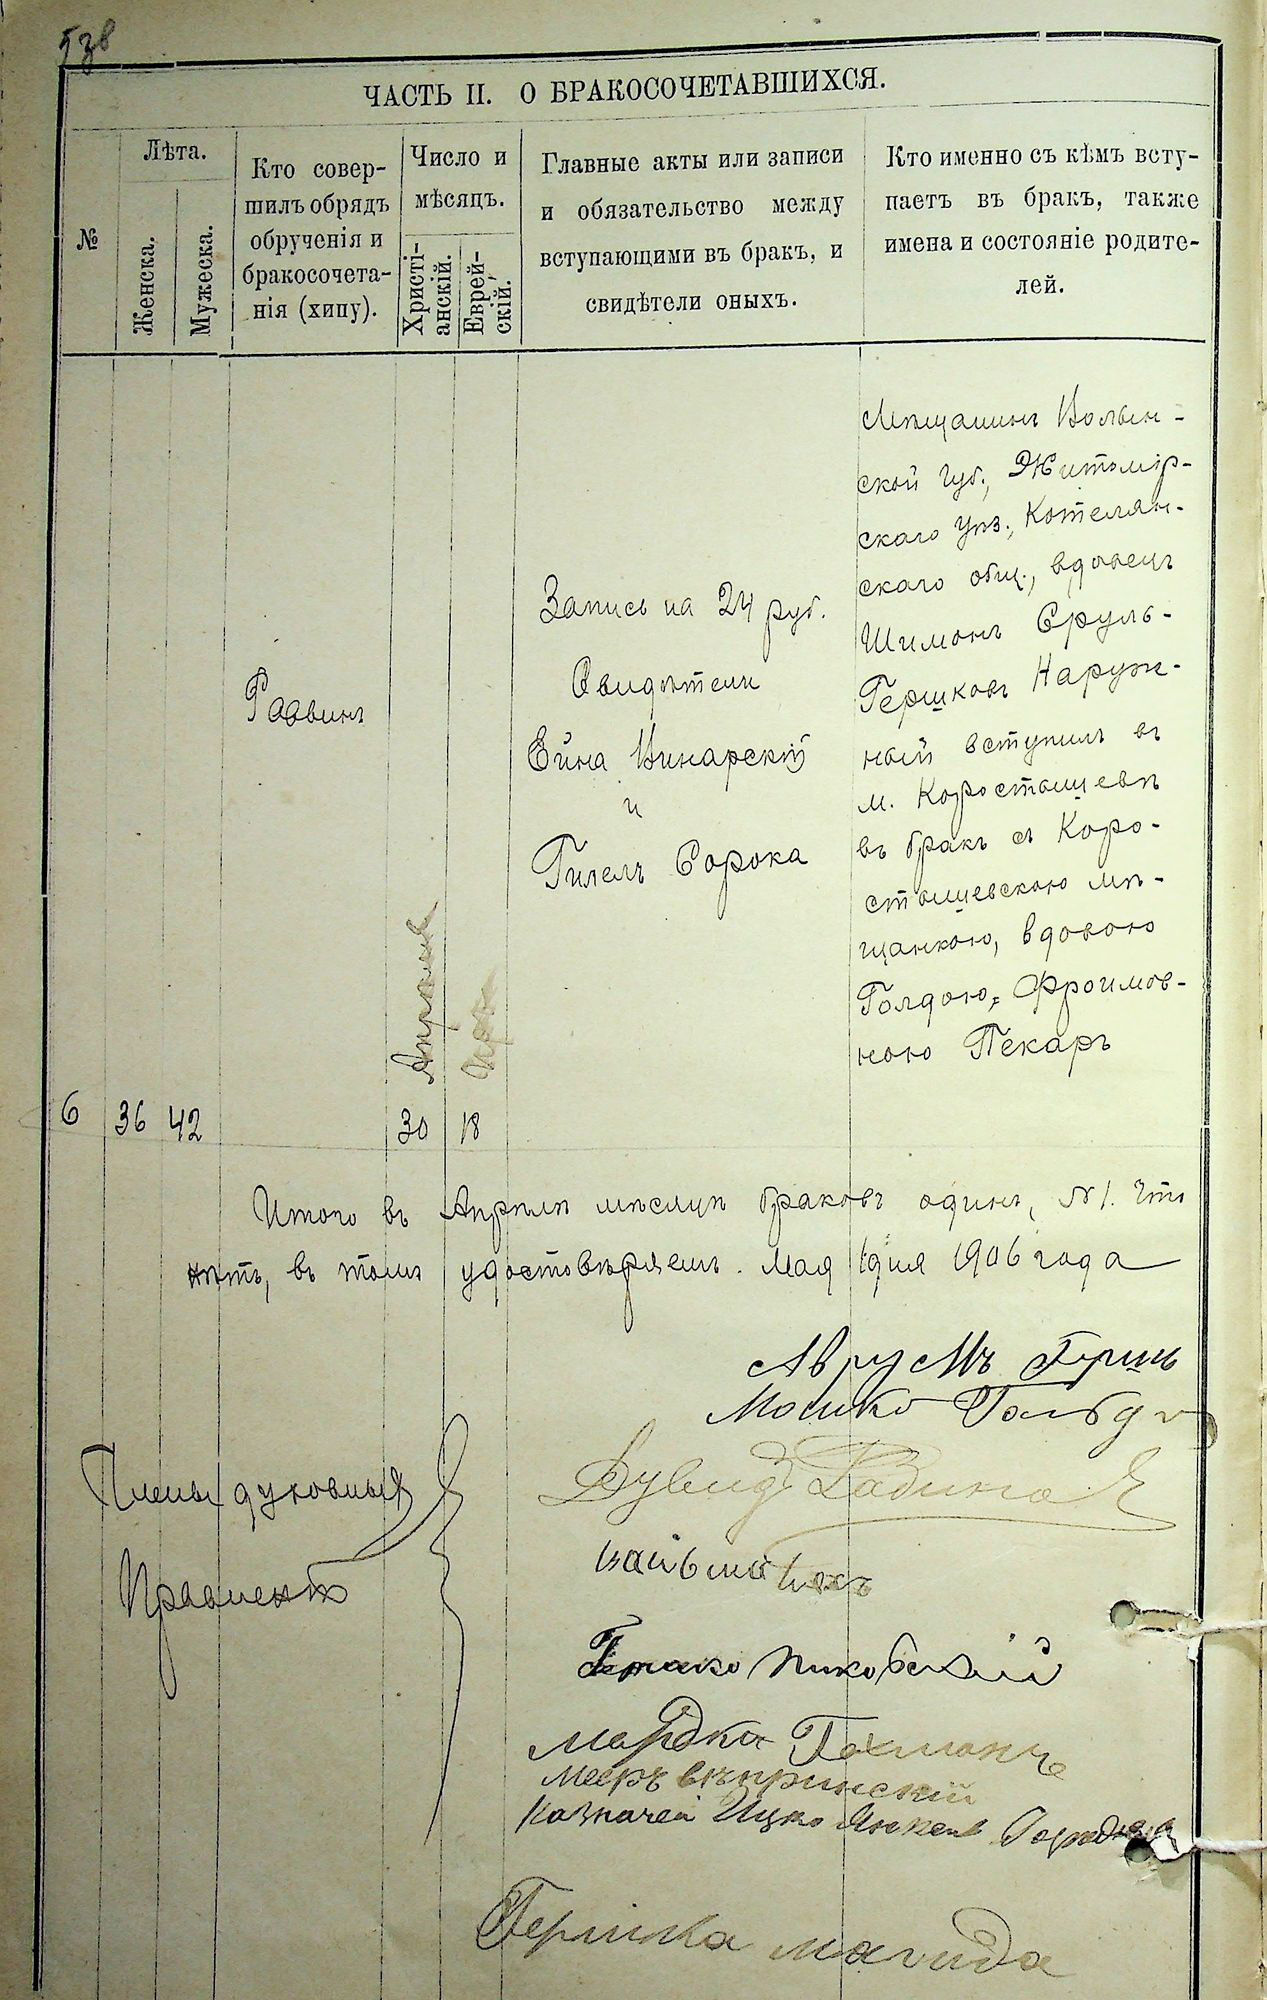 538
ЧАСТЬ II. О БРАКОСОЧЕТАВШИХСЯ.
№
Лѣта.
Женска.
Мужеска.
Кто совер-
шилъ обрядъ
обрученія и
бракосочета-
нія (хипу).
Число и
мѣсяцъ.
Христі-
анскій.
Еврей-
скій.
Главные акты или записи
и обязательство между
вступающими въ бракъ, и
свидѣтели оныхъ.
Кто именно съ кѣмъ всту-
паетъ въ бракъ, также
имена и состояніе родите-
лей.
6
36
42
Раввинъ
Апрѣля
30
Іяръ
18
Запись на 24 руб.
Свидѣтели
Ейна Винарскій
и
Гилелъ Сорока
Мѣщанинъ Волын-
ской губ., Житомір-
скаго уѣз., Котелян-
скаго общ., вдовецъ
Шимонъ Сруль-
Гершковъ Наруж-
ный вступилъ въ
м. Коростышевѣ
въ бракъ съ Коро-
стышевскою мѣ-
щанкою, вдовою
Голдою, Фроимов-
ною Пекаръ
Итого въ Апрѣлѣ мѣсяцѣ браковъ одинъ, №1. Что
въ томъ удостовѣряемъ. Мая 1 дня 1906 года
Аврумъ Гершъ
Мошко
Члены духовныя
Правленія
Дувидъ
Пиковскій
Мордко Гехманъ
Мееръ
Казначей Ицко Янкель
Гершко Магида